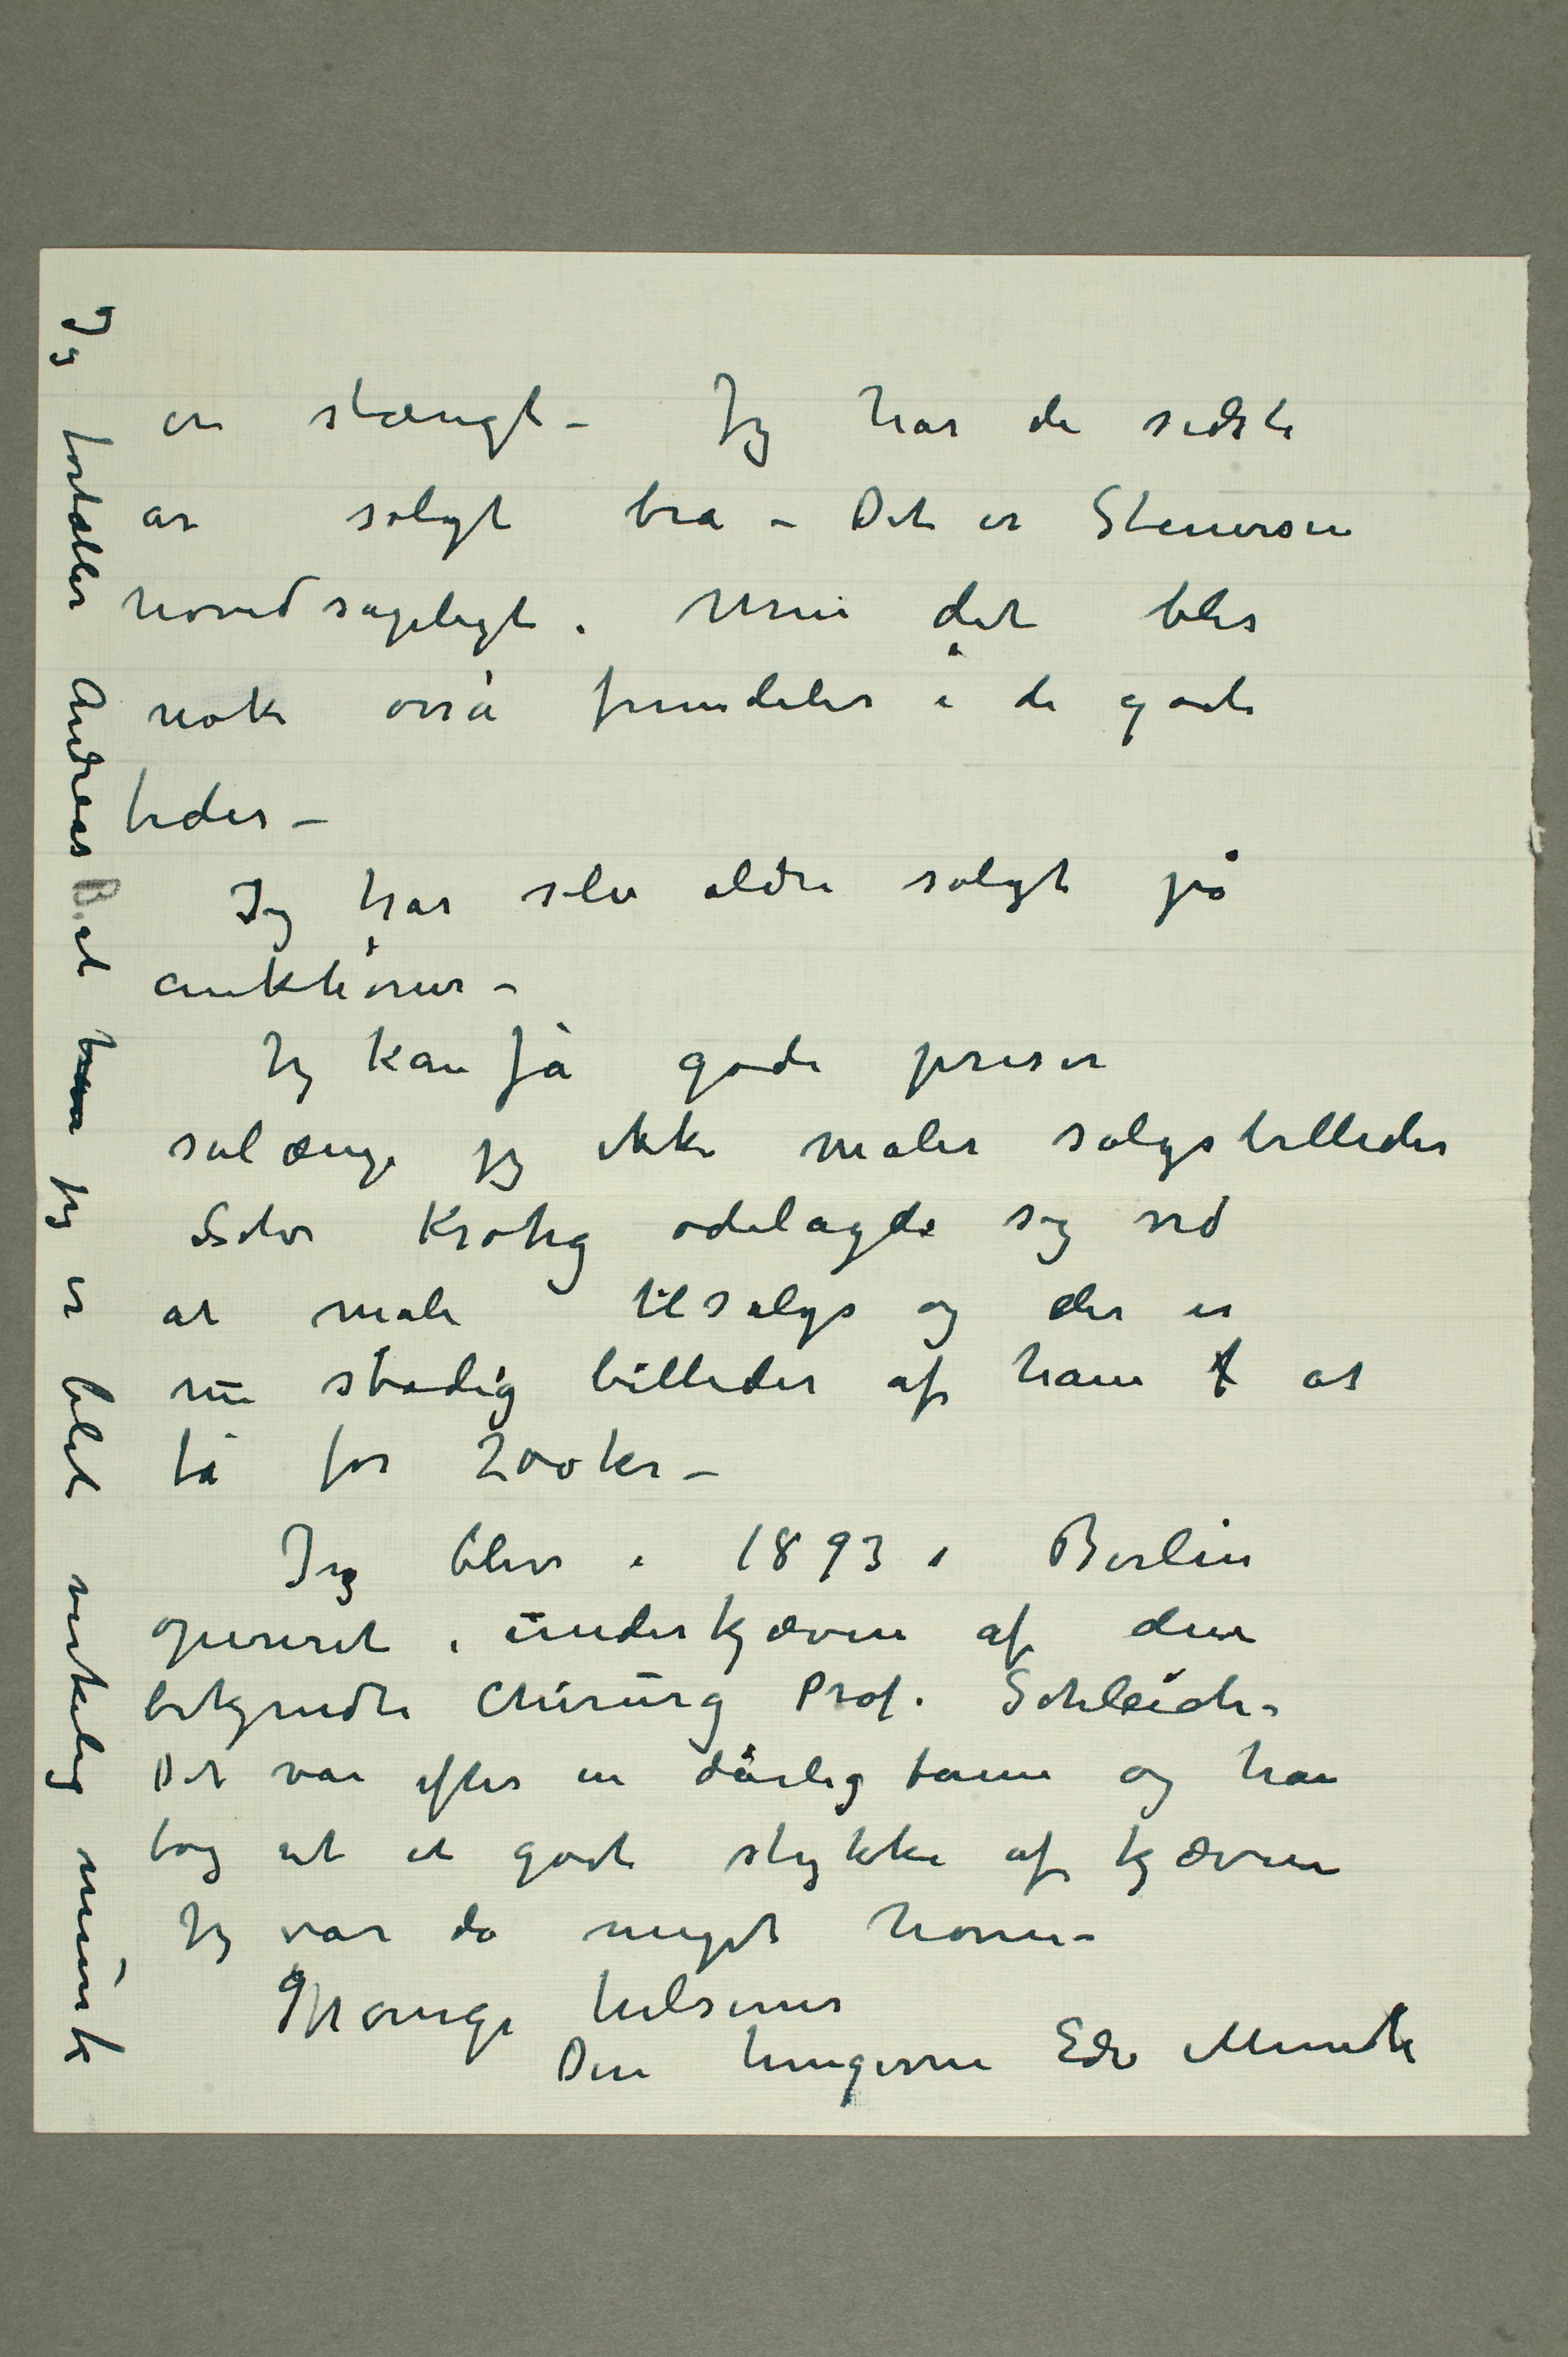 er stængt – Jeg har de sidste
år solgt bra – Det er Stenersen
hovedsageligt. Men det blev
nok også fremdeles i de gode
tider –
Jeg har selv aldri solgt på
auktioner –
Jeg kan få gode priser
sålænge jeg ikke maler salgsbilleder
Selv Krohg ødelagde sig ved
at male tilsalgs og der er
nu stadig billeder af ham at
få for 200 kr –
Jeg blev i 1893 i Berlin
opereret i underkjæven af den
bekjendte Chirurg Prof. Schleich –
Det var efter en dårlig tann og han
tog ut et godt stykke af kjæven
Jeg var da meget hoven –
Mange hilsener
Din hengivne Edv Munch
Jeg fortæller Andreas B. at jeg er blet virkelig